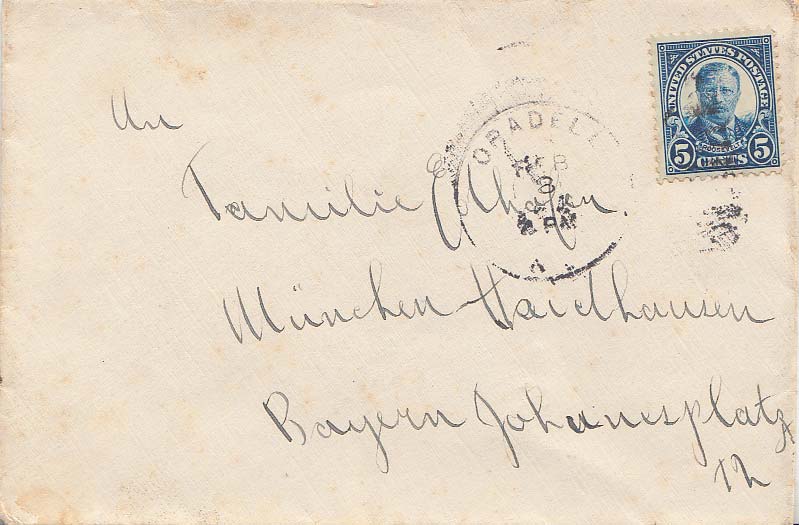 An
Familie
München-Haidhausen
Bayern Johannesplatz
12
UNITED STATES POSTAGE
ROOSEVELT
5 CENTS 5
ORADELL
FEB
8